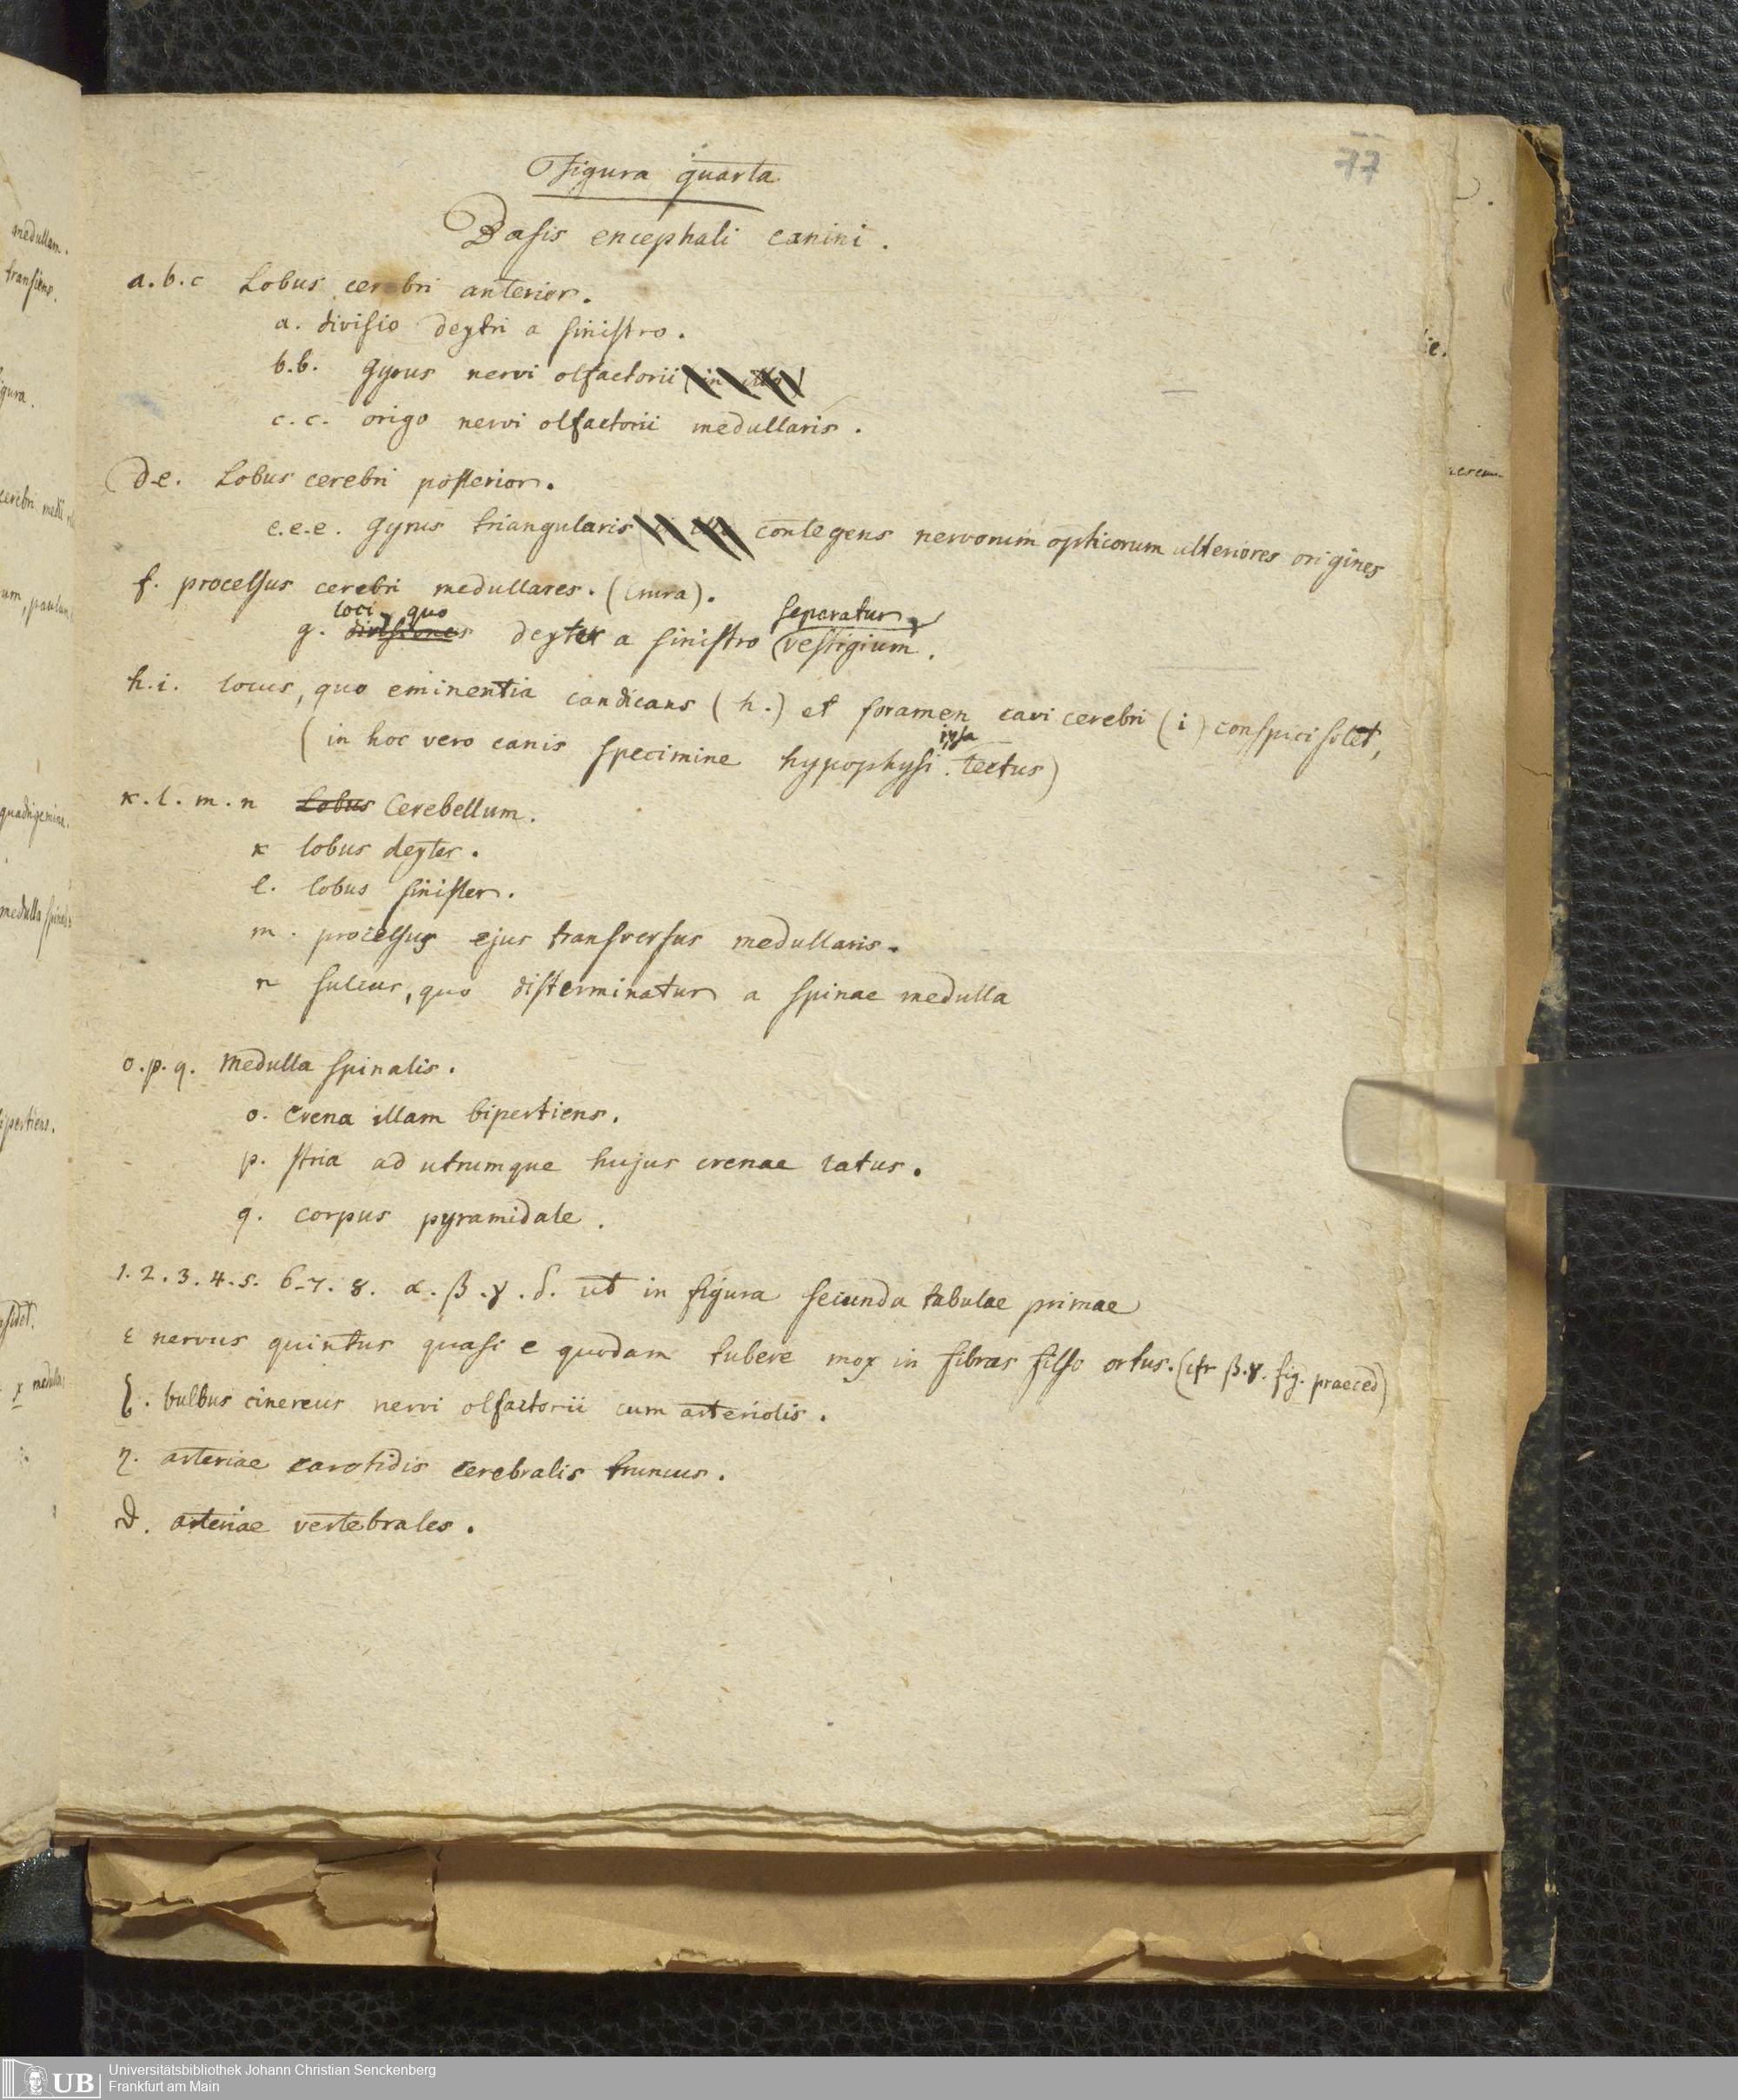 77
Figura quarta
Basis encephali canini.
a. b. c Lobus cerebri anterior.
a. divisio dextri a sinistro.
b.b. Gyrus nervi olfactorii
c. c. origo nervi olfactorii medullaris.
d-e. Lobus cerebri posterior.
e.e.e. Gyrus triangularis contegens nervorum opticorum ulteriores origines
f. processus cerebri medullares. (crura).
loci, quo separatur
g. divisiones dexter a sinistro vestigium.
h.i. locus, quo eminentia candicans (h.) et foramen cavi cerebri (i) conspici solet,
ipsa
(in hoc vero canis specimine hypophysi tectus)
k. l. m. n Lobus Cerebellum.
k lobus dexter.
l. lobus sinister.
m. processus ejus transversus medullaris.
n sulcus, quo disterminatur a spinae medulla
o. p. q. Medulla spinalis.
o. crena illam bipertiens.
p. stria ad utrumque hujus crenae latus.
q. corpus pyramidale.
1. 2. 3. 4. 5. 6. 7. 8. α. β. γ. δ. ut in figura secunda tabulae primae
ε nervus quintus quasi e quodam tubere mox in fibras fisso ortus. (cfr β.γ. fig. praeced)
ζ. bulbus cinereus nervi olfactorii cum arteriolis.
η. arteriae carotidis cerebralis truncus.
ϑ. arteriae vertebrales.
medullam.
transiens.
igura.
cerebri medii
um, paulum
quadrigemina.
medulla spinal
ipertiens.
UB
Universitätsbibliothek Johann Christian Senckenberg
Frankfurt am Main